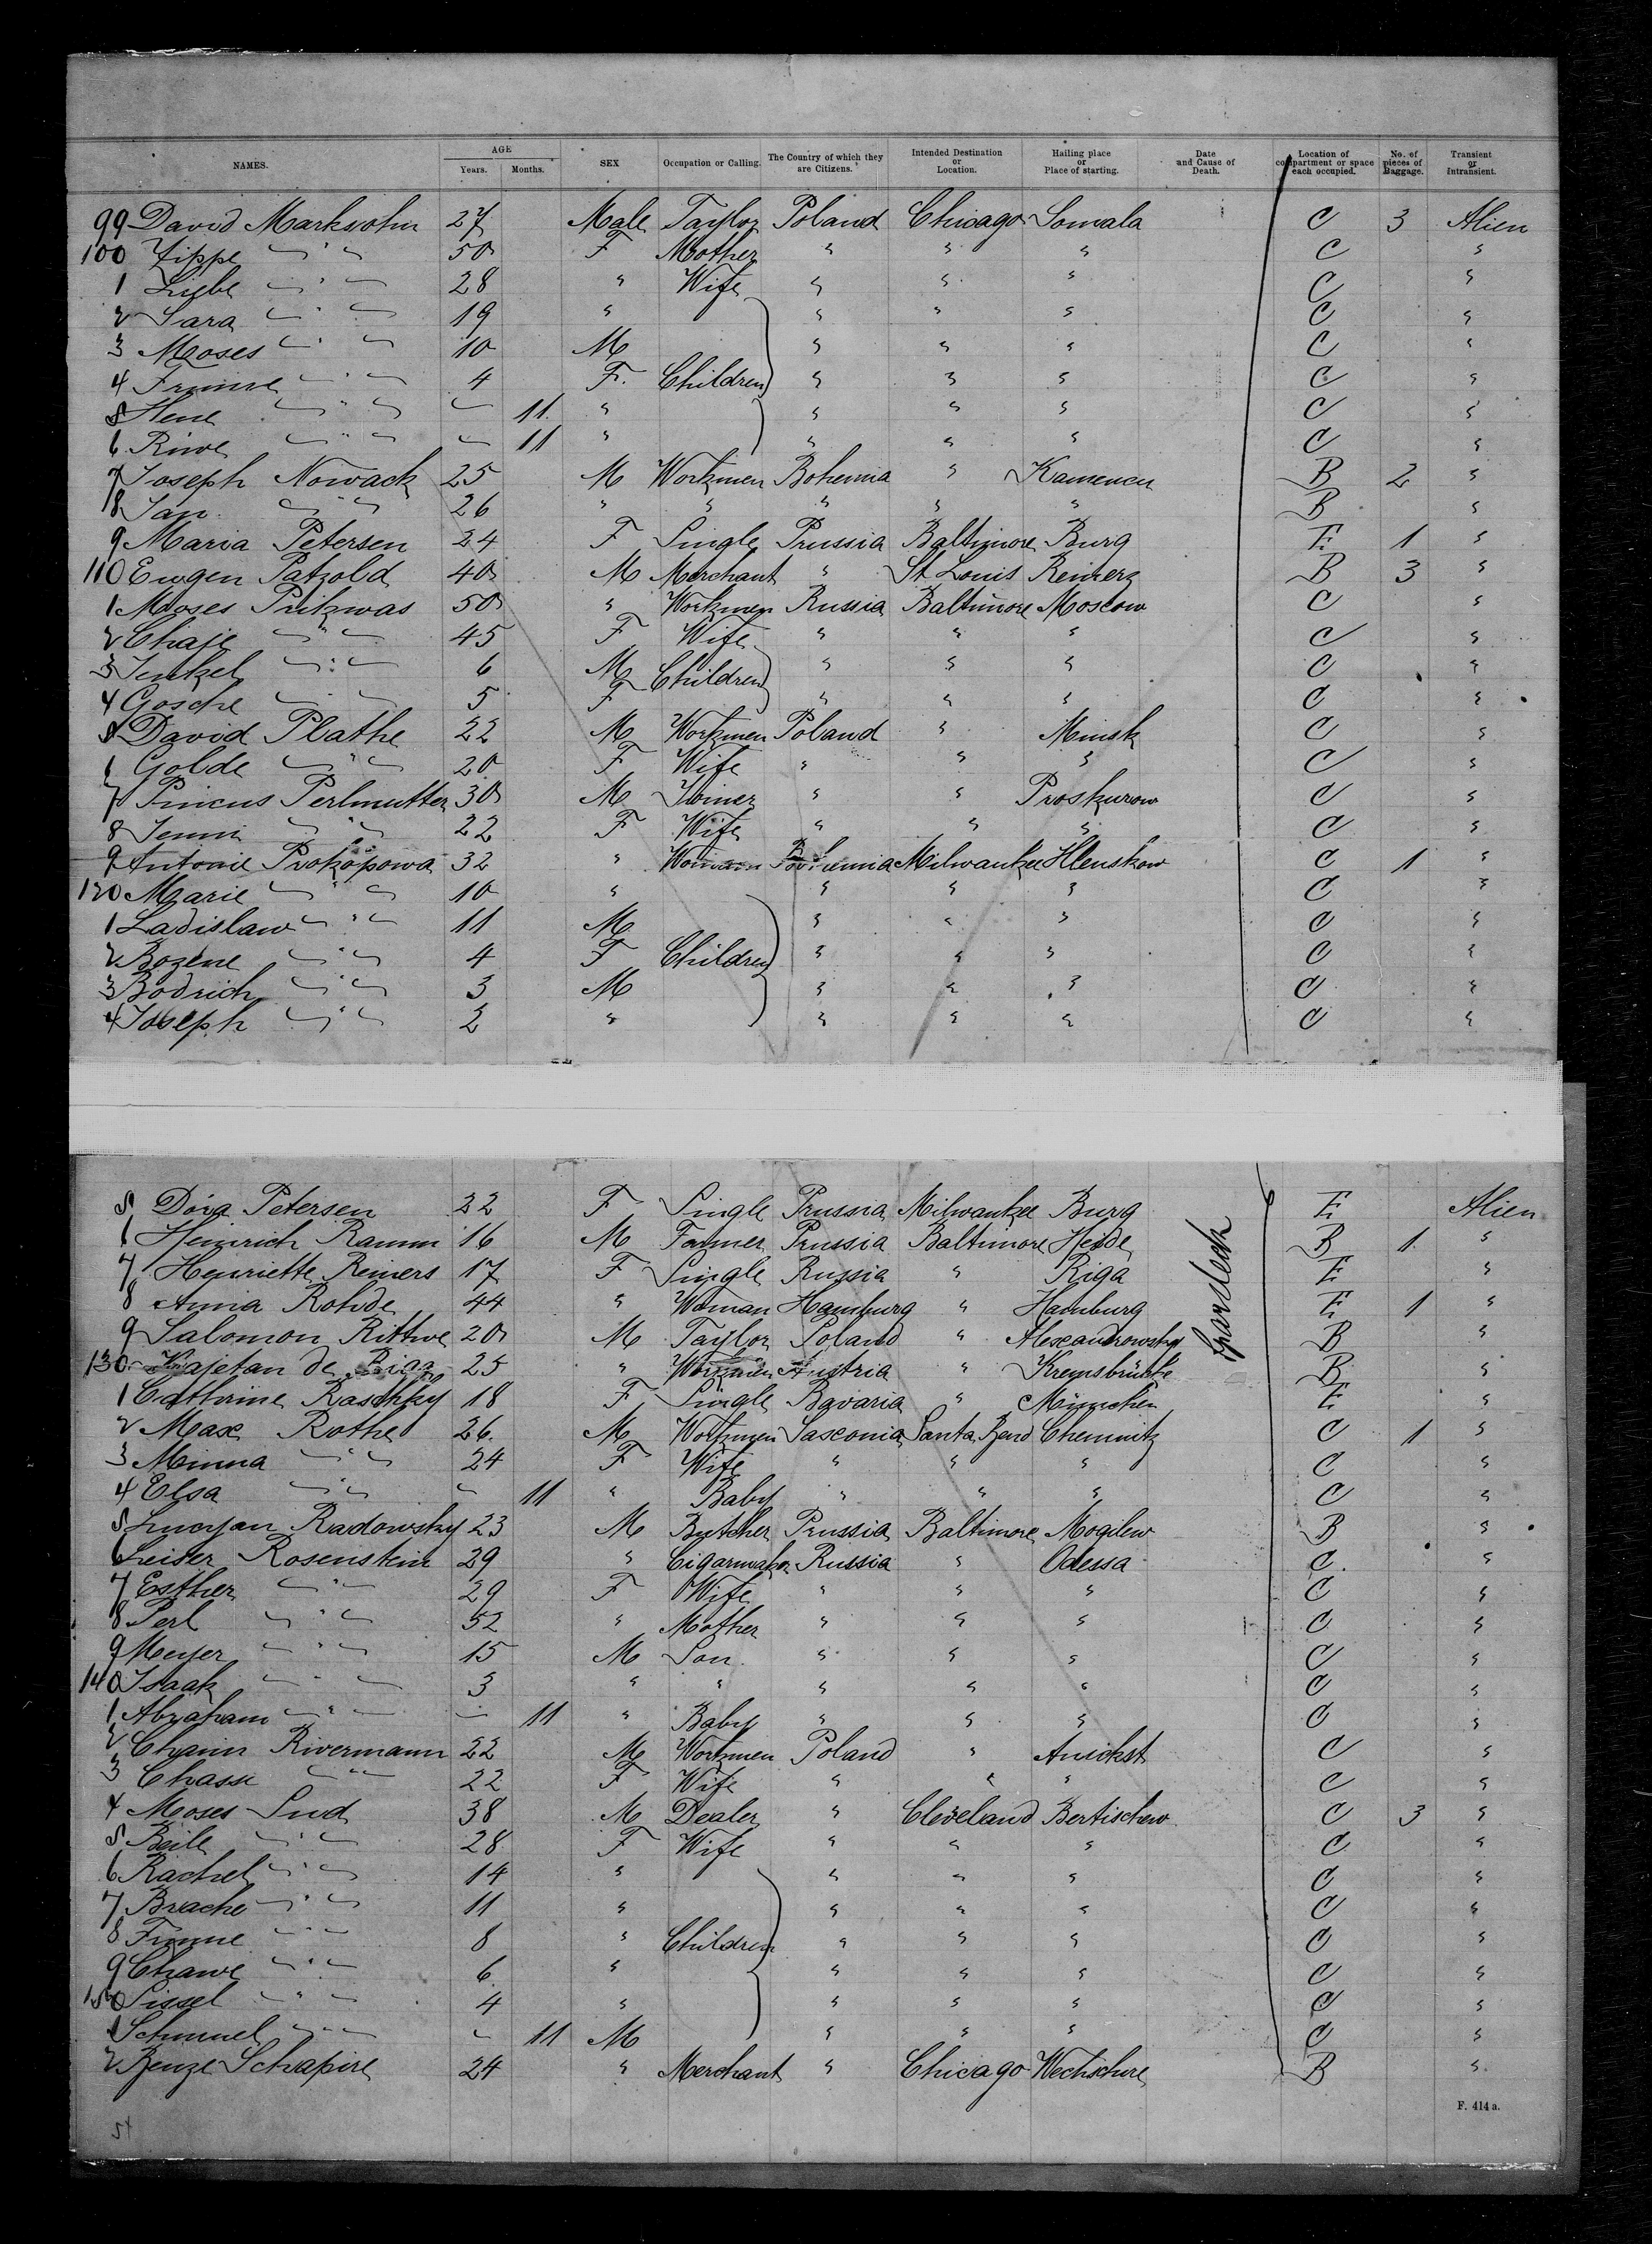 NAMES. AGE Years. Months. SEX Occupation or Calling. The Country of which they are Citizens. Intended Destination or Location. Hailing place or Place of starting. Date and Cause of Death. Location of compartment or space each occupied. No. of pieces of Baggage. Transient or Intransient.
99 David Marksohn 27 Male Taylor Poland Chicago Somala C 3 Alien
100 Zippe " 50 F Mother " " " C "
1 Liebe " 28 " Wife " " " C "
2 Sara " 19 " " " " C "
3 Moses " 10 M " " " C "
4 Frume " 4 F. Children " " " C "
5 Hene " - 11 " " " " C "
6 Riwe " - 11 " " " " C "
7 Joseph Nowack 25 M Workmen Bohemia " Kamenen B 2 "
8 Jan " 26 " " " " " B "
9 Maria Petersen 24 F Single Prussia Baltimore Burg E 1 "
110 Eugen Patzold 40 M Merchant " St Louis Reinerz B 3 "
1 Moses Pritzwas 50 " Workmen Russia Baltimore Moscow C "
2 Chaje " 45 F Wife " " " C "
3 Jenkel " 6 M Children " " " C "
4 Gosche " 5 F " " " C "
5 David Plathe 22 M Workmen Poland " Minsk C "
6 Golde " 20 F Wife " " " C "
7 Pincus Perlmutter 30 M Joiner " " Proskurow C "
8 Jenni " 22 F Wife " " " C "
9 Antonie Prokopowa 32 " Woman Bohemia Milwaukee Hlenskow C 1 "
120 Marie " 10 " " " " C "
1 Ladislaw " 11 M " " " C "
2 Bozene " 4 F Children " " " C "
3 Bodrich " 3 M " " " C "
4 Joseph " 2 " " " " C "
5 Dora Petersen 22 F Single Prussia Milwaukee Burg E Alien
6 Heinrich Ramm 16 M Farmer Prussia Baltimore Heide B 1 "
7 Henriette Reiners 17 F Single Russia " Riga E "
8 Anna Rohde 44 " Woman Hamburg " Hamburg E 1 "
9 Salomon Rittwe 20 M Taylor Poland " Alexandrowsky B "
130 Kajetan de Riga 25 " Workmen Austria " Kremsbrücke B "
1 Cathrine Raschky 18 F Single Bavaria " München E "
2 Max Rothe 26 M Workmen Sasconia Santa Rend Chemnitz C 1 "
3 Minna " 24 F Wife " " " C "
4 Elsa " - 11 " Baby " " " C "
5 Lucyan Radowsky 23 M Butcher Prussia Baltimore Mogilew B "
6 Leiser Rosenstein 29 " Cigarmaker Russia " Odessa C "
7 Esther " 29 F Wife " " " C "
8 Perl " 52 " Mother " " " C "
9 Meyer " 15 M Son " " " C "
140 Isaak " 3 " " " " " C "
1 Abraham " - 11 " Baby " " " C "
2 Chaim Rivermann 22 M Workmen Poland " Anickst C "
3 Chasse " 22 F Wife " " " C "
4 Moses Sud 38 M Dealer " Cleveland Bertischew C 3 "
5 Beile " 28 F Wife " " " C "
6 Rachel " 14 " " " " C "
7 Brache " 11 " " " " C "
8 Frume " 8 " Children " " " C "
9 Chawe " 6 " " " " C "
150 Sissel " 4 " " " " C "
1 Schmuel " - 11 M " " " C "
2 Benze Schapire 24 " Merchant " Chicago Wechschure B "
F. 414 a.